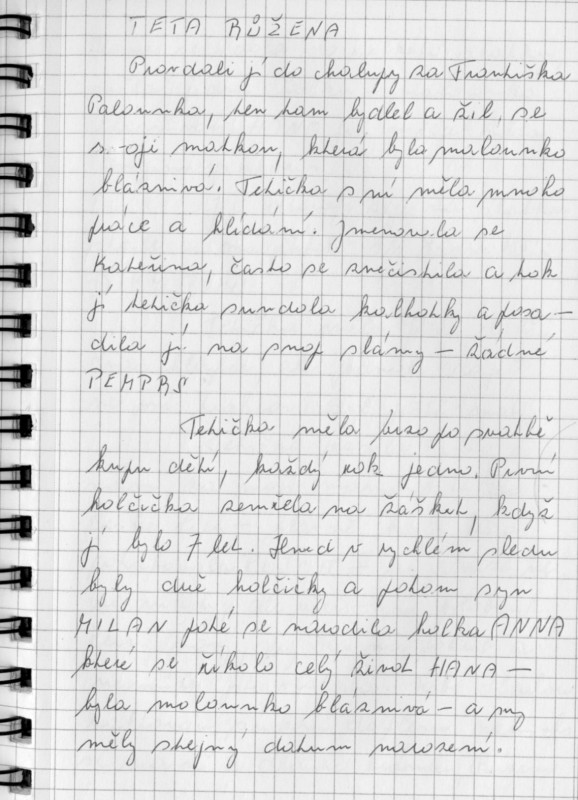 TETA RŮŽENA
Provdali jí do chalupy za Františka
Palounka, ten tam bydlel a žil se
s-oji matkou, která byla malounko
bláznivá. Tetička s ní měla mnoho
práce a hlídání. Jmenovala se
Kateřina, často se znečistila a tak
jí tetička sundala kalhotky a posa-
dila jí na snop slámy - žádné
PEMPRS
Tetička měla brzo po svatbě
kupu dětí, každý rok jedno. První
holčička zemřela na záškrt, když
jí bylo 7 let. Hned v rychlém sledu
byly dvě holčičky a potom syn
MILAN poté se narodila holka ANNA
které se říkalo celý život HANA -
byla malounko bláznivá - a my
měly stejný datum narození.